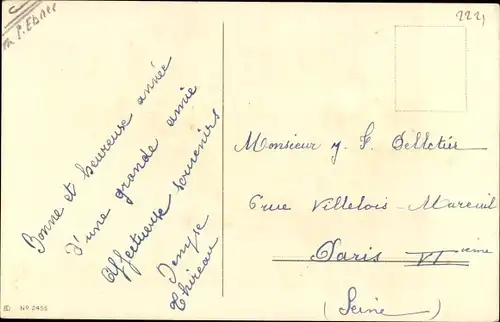 P. Ebner
2221
Bonne et heureuse année
d'une grande amie
Affectueux souvenirs
Denyse
Thireau
Monsieur J. F. Pelletier
6 rue Villebois-Mareuil
Paris VI ième
(Seine)
No 2455